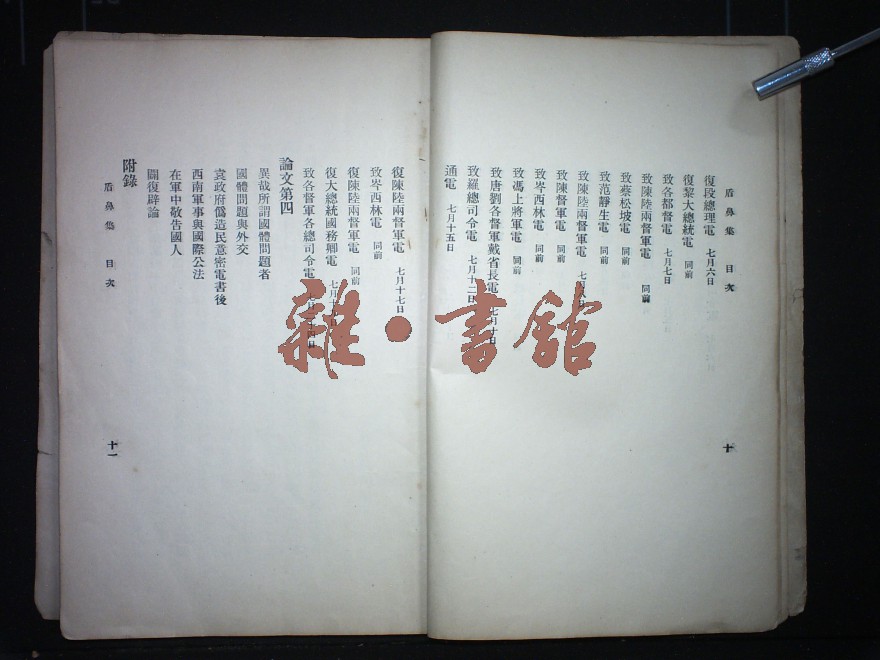 盾鼻集 目次
復段總理電 七月六日
復黎大總統電 同前
致各都督電 七月七日
致陳陸兩督軍電 同前
致蔡松坡電 同前
致范靜生電 同前
致陳陸兩督軍電
致陳督軍電 同前
致岑西林電 同前
致馮上將軍電 同前
致唐劉各督軍戴省長電 七月十日
致羅總司令電 七月十二日
通電 七月十五日
十
復陳陸兩督軍電 七月十七日
致岑西林電 同前
復陳陸兩督軍電 同前
復大總統國務卿電
致各督軍各總司令電
論文第四
異哉所謂國體問題者
國體問題與外交
袁政府僞造民意密電書後
西南軍事與國際公法
在軍中敬告國人
闢復辟論
附錄
盾鼻集 目次
十一
雜·書館